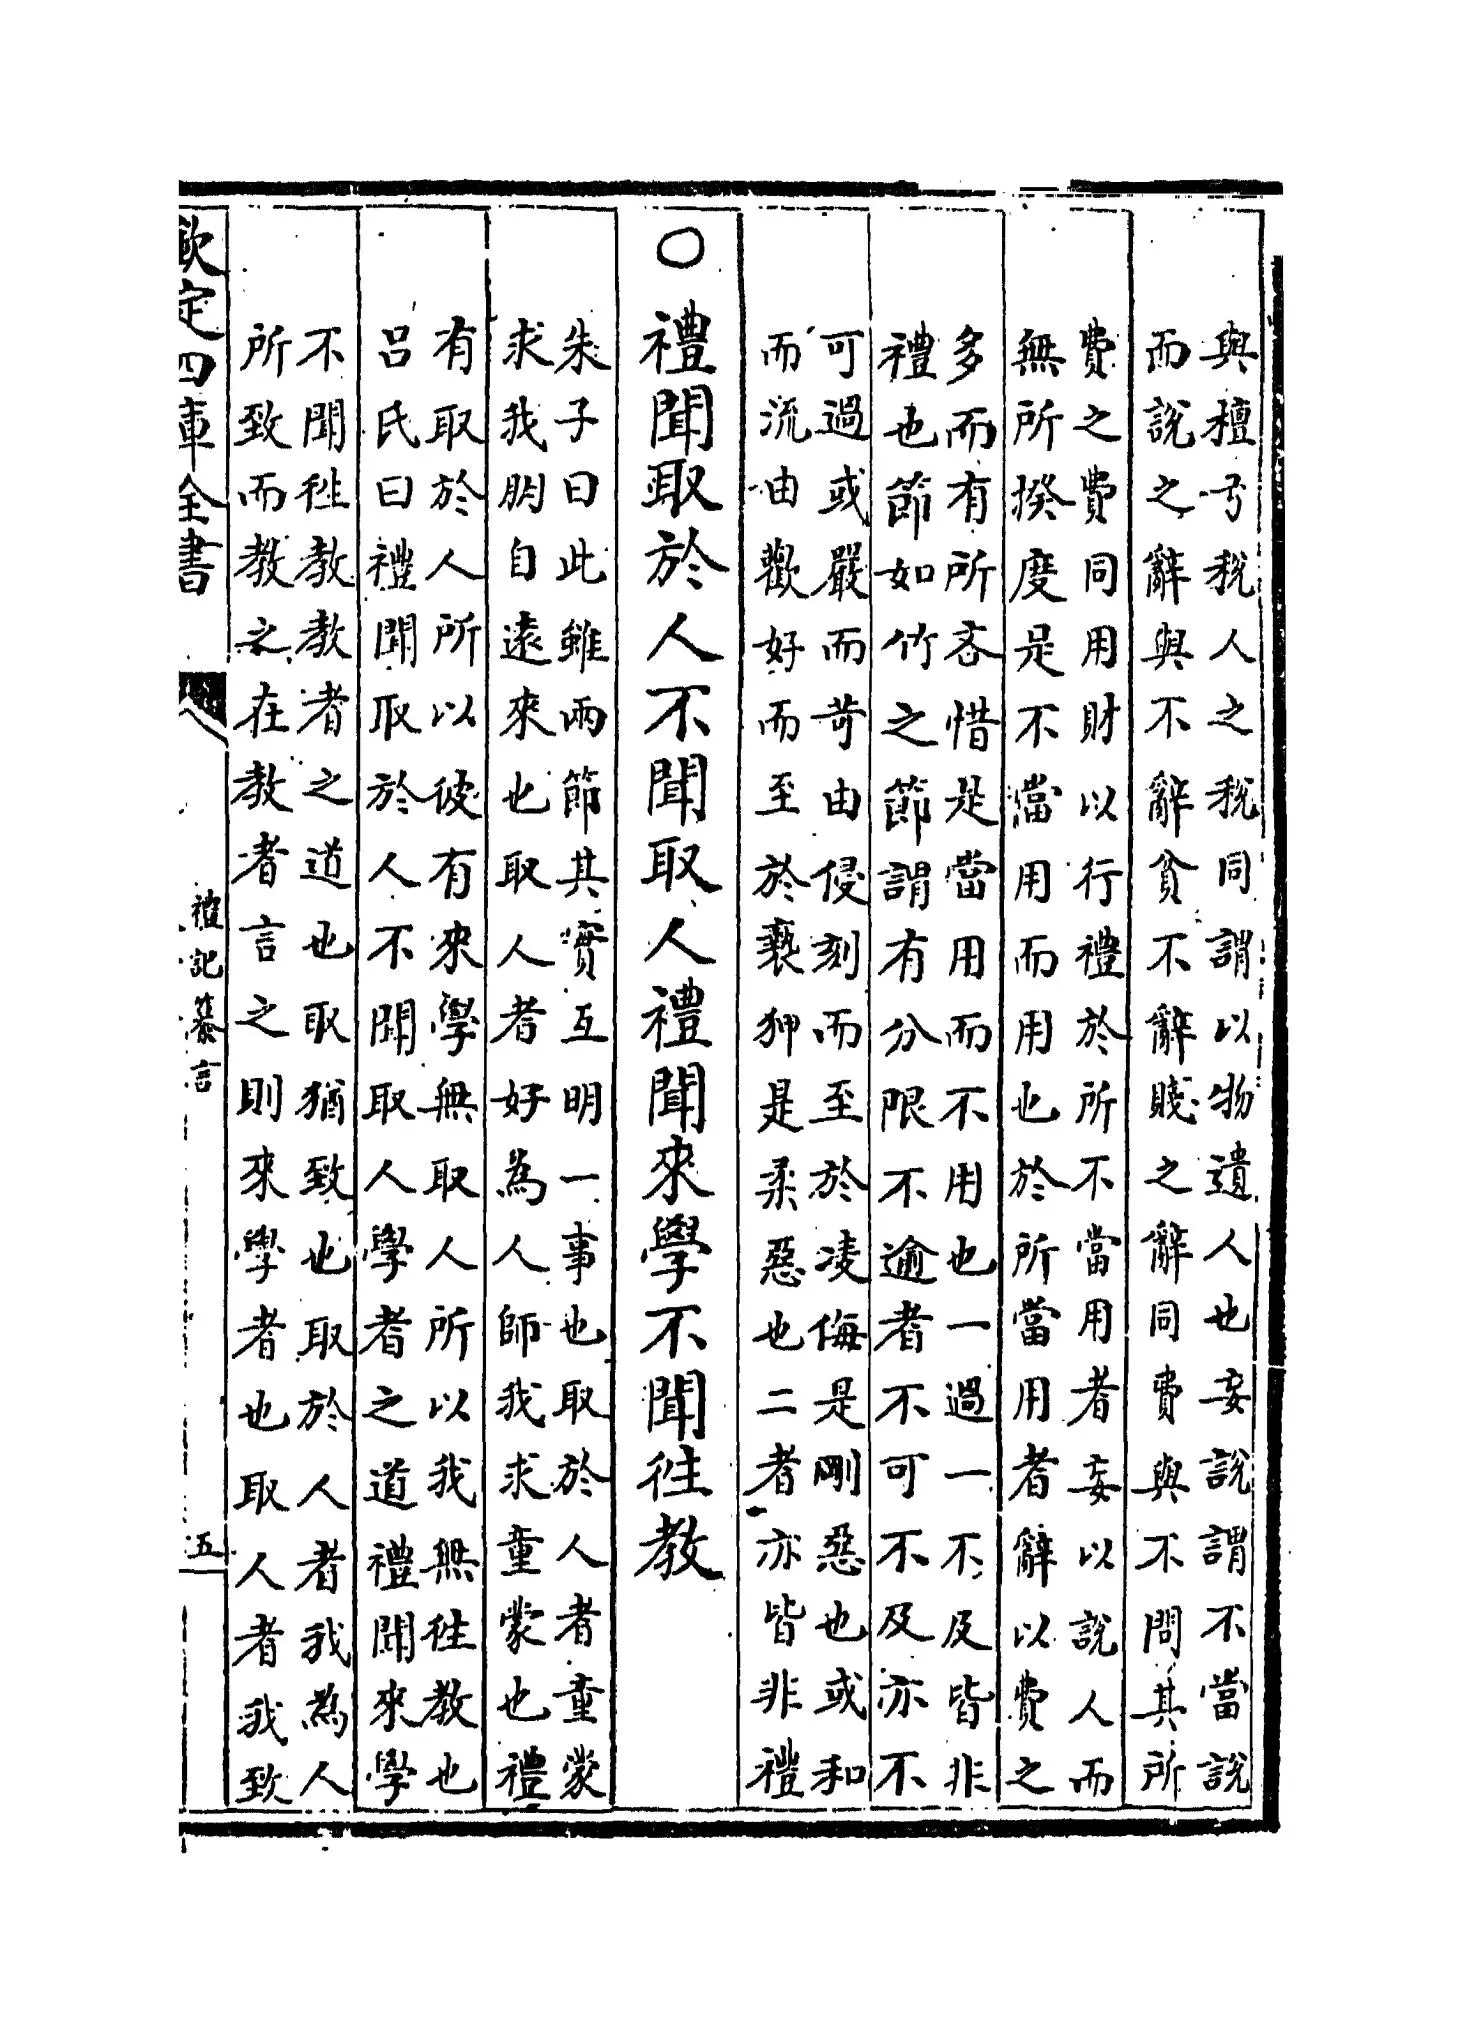 與檀弓稅人之稅同謂以物遺人也妄說謂不當說
而說之辭與不辭貧不辭賤之辭同費與不問其所
費之費同用財以行禮於所不當用者妄以說人而
無所揆度是不當用而用也於所當用者辭以費之
多而有所吝惜是當用而不用也一過一不及皆非
禮也節如竹之節謂有分限不逾者不可不及亦不
可過或嚴而苛由侵刻而至於凌侮是剛惡也或和
而流由歡好而至於褻狎是柔惡也二者亦皆非禮
〇禮聞取於人不聞取人禮聞來學不聞徃教
朱子曰此雖兩節其實互明一事也取於人者童蒙
求我朋自遠來也取人者好為人師我求童蒙也禮
有取於人所以彼有來學無取人所以我無徃教也
呂氏曰禮聞取於人不聞取人學者之道禮聞來學
不聞徃教教者之道也取猶致也取於人者我為人
所致而教之在教者言之則來學者也取人者我致
欽定四庫全書
禮記纂言
五